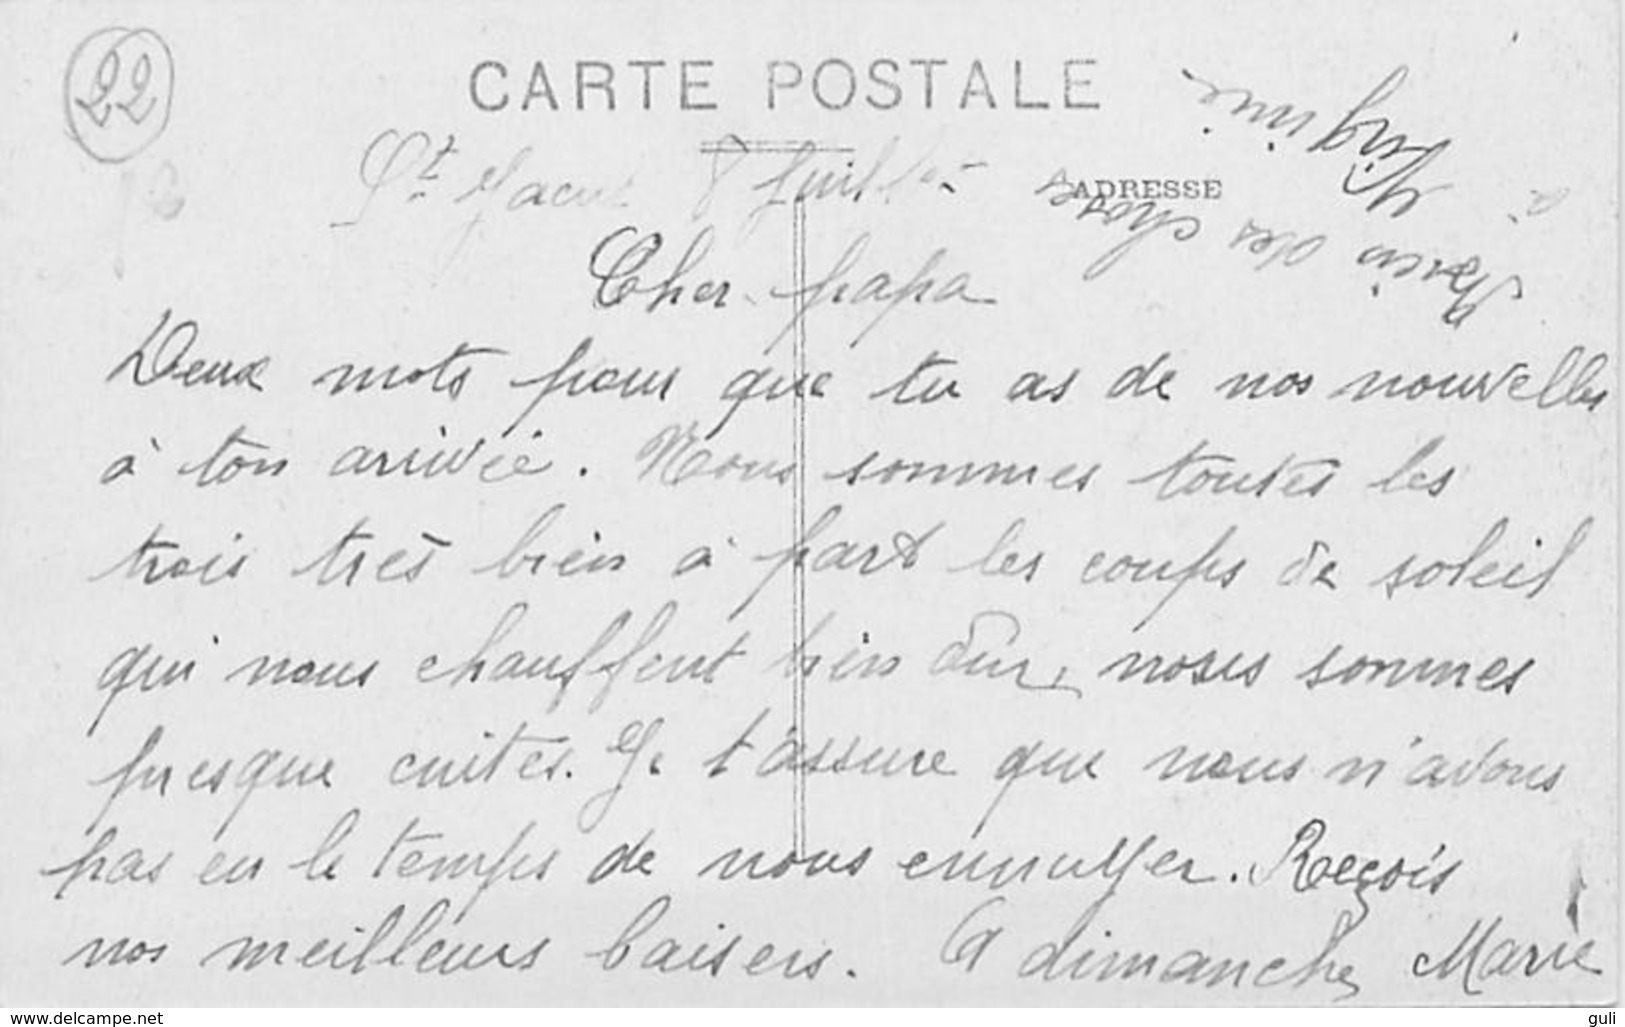 22
CARTE POSTALE
St Jacut 8 Juillet
ADRESSE
Cher papa
Deux mots pour que tu as de nos nouvelles
à ton arrivée. Nous sommes toutes les
trois très bien à part les coups de soleil
qui nous chauffent bien dur, nous sommes
presque cuites. Je t'assure que nous n'avons
pas eu le temps de nous ennuyer. Reçois
nos meilleurs baisers. A dimanche Marie
Bien des choses
à Virginie.
www.delcampe.net
guli